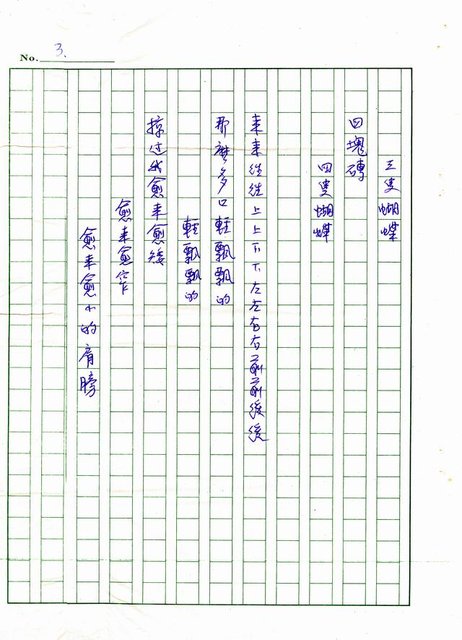 No. 3.
三隻蝴蝶
四塊磚
四隻蝴蝶
来来往往上上下下左左右右前前後後
那麼多口輕飄飄的
輕飄飄的
掠过我愈来愈矮
愈来愈窄
愈来愈小的肩膀